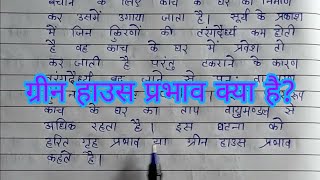 बचाने के लिए कांच के घर का निर्माण
कर उसमें उगाया जाता है। सूर्य के प्रकाश
में जिन किरणों की तरंगदैर्ध्य कम होती
है वह काँच के घर में प्रवेश तो
कर जाती है परंतु टकराने के कारण
तरंगदैर्ध्य बढ़ जाने से पुनः
ग्रीन हाउस प्रभाव क्या है?
काँच के घर का ताप वायुमण्डल से
अधिक रहता है। इस घटना को
हरित गृह प्रभाव या ग्रीन हाउस प्रभाव
कहते है।